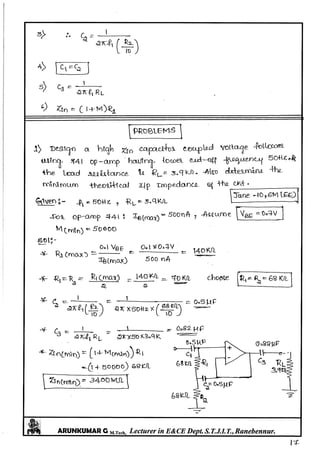 3) ∴ C₂ = 1 / 2πf₁ (R₂/10)
4) C₁ = C₂
5) C₃ = 1 / 2πf₁ RL
6) Zin = (1+M)R₂
PROBLEMS
1) Design a high Zin capacitor coupled voltage follower
using 741 op-amp having lower cut-off frequency 50Hz &
the load resistance is RL = 3.9KΩ. Also determine the
minimum theoritical i/p impedance of the ckt.
Jane-10, 6M (EE)
Given:- f₁ = 50Hz, RL = 3.9KΩ
For op-amp 741: IB(max) = 500nA, Assume VBE = 0.7V
M(min) = 50000
Sol:-
* R1(max) = 0.1 VBE / IB(max) = 0.1 x 0.7V / 500 nA = 140KΩ
* R1 = R2 = R1(max) / 2 = 140KΩ / 2 = 70KΩ choose R1 = R2 = 68KΩ
* C₂ = 1 / 2πf₁(R₂/10) = 1 / 2π x 50Hz x (68KΩ/10) = 0.5μF
* C₃ = 1 / 2πf₁ RL = 1 / 2πx50x3.9K = 0.82μF
* Zin(min) = (1+M(min)) R1
= (1+50000) 68KΩ
Zin(min) = 3400MΩ
0.5μF
C1
68KΩ R1
C2 = 0.5μF
68KΩ R2
0.82μF
C3 RL
3.9KΩ
ARUNKUMAR G M.Tech, Lecturer in E&CE Dept. S.T.J.I.T., Ranebennur.